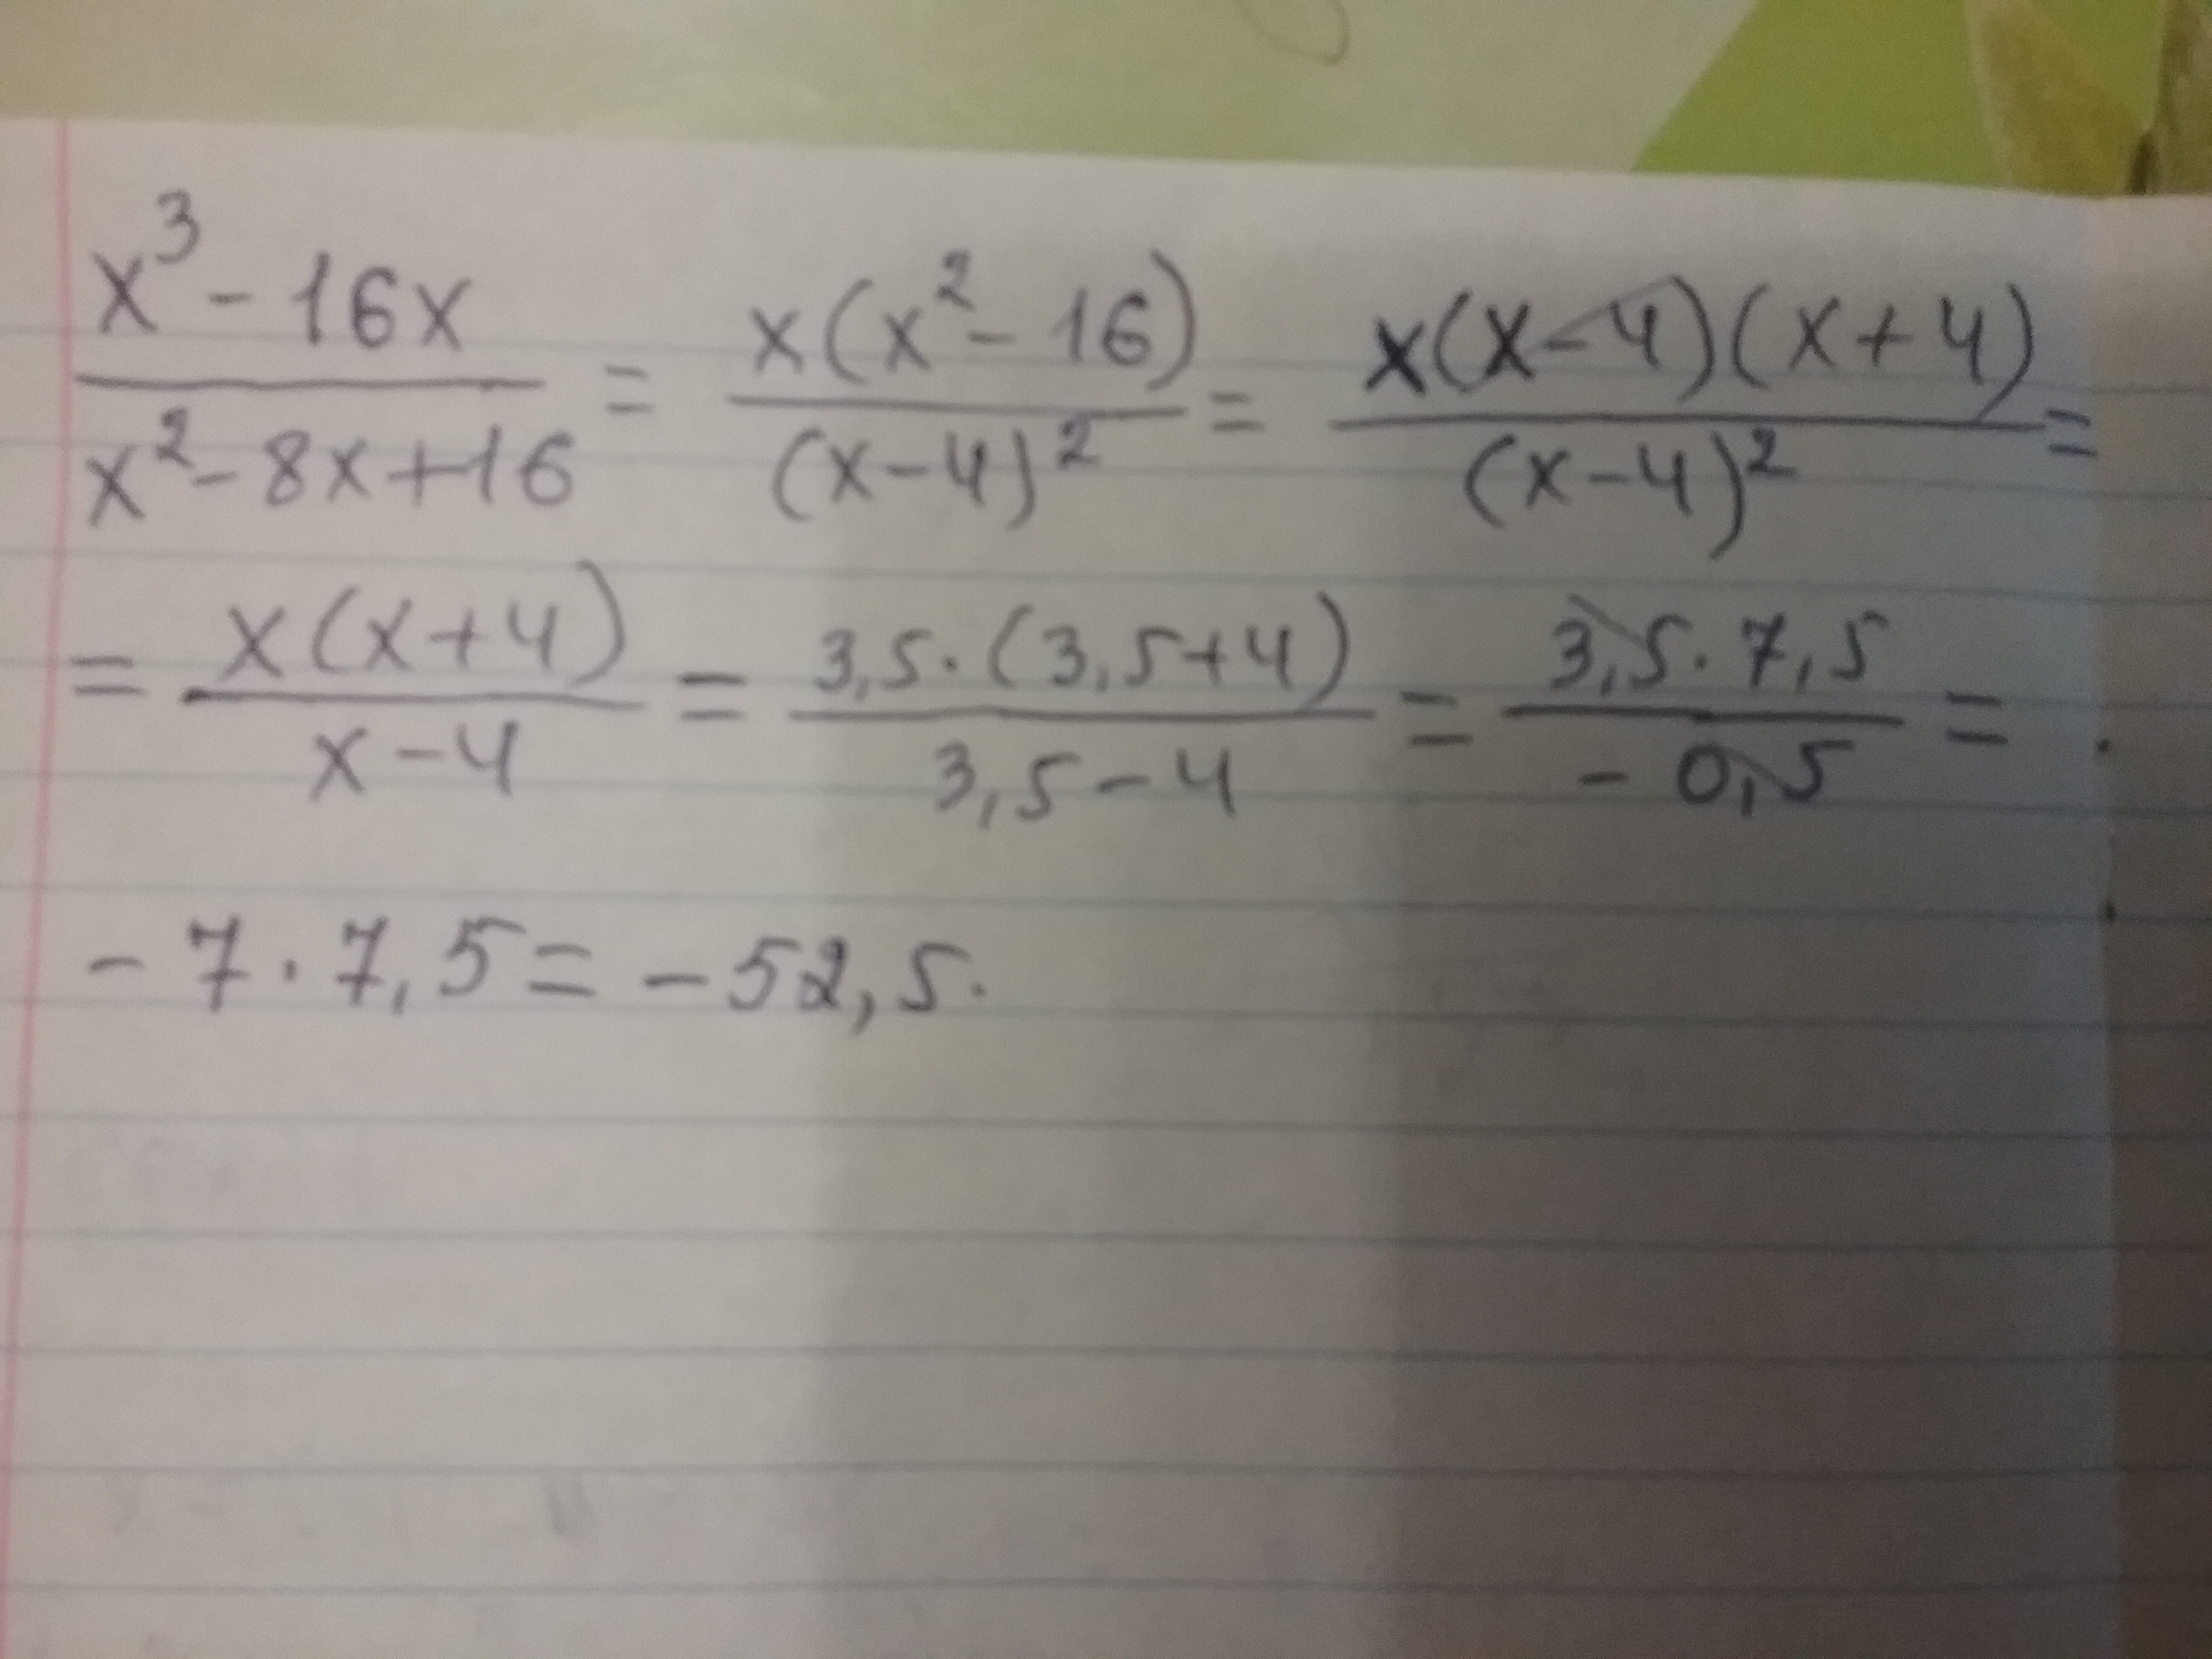 x³ - 16x / x² - 8x + 16 = x(x² - 16) / (x - 4)² = x(x - 4)(x + 4) / (x - 4)² =
= x(x + 4) / x - 4 = 3,5 · (3,5 + 4) / 3,5 - 4 = 3,5 · 7,5 / - 0,5 =
- 7 · 7,5 = - 52,5.